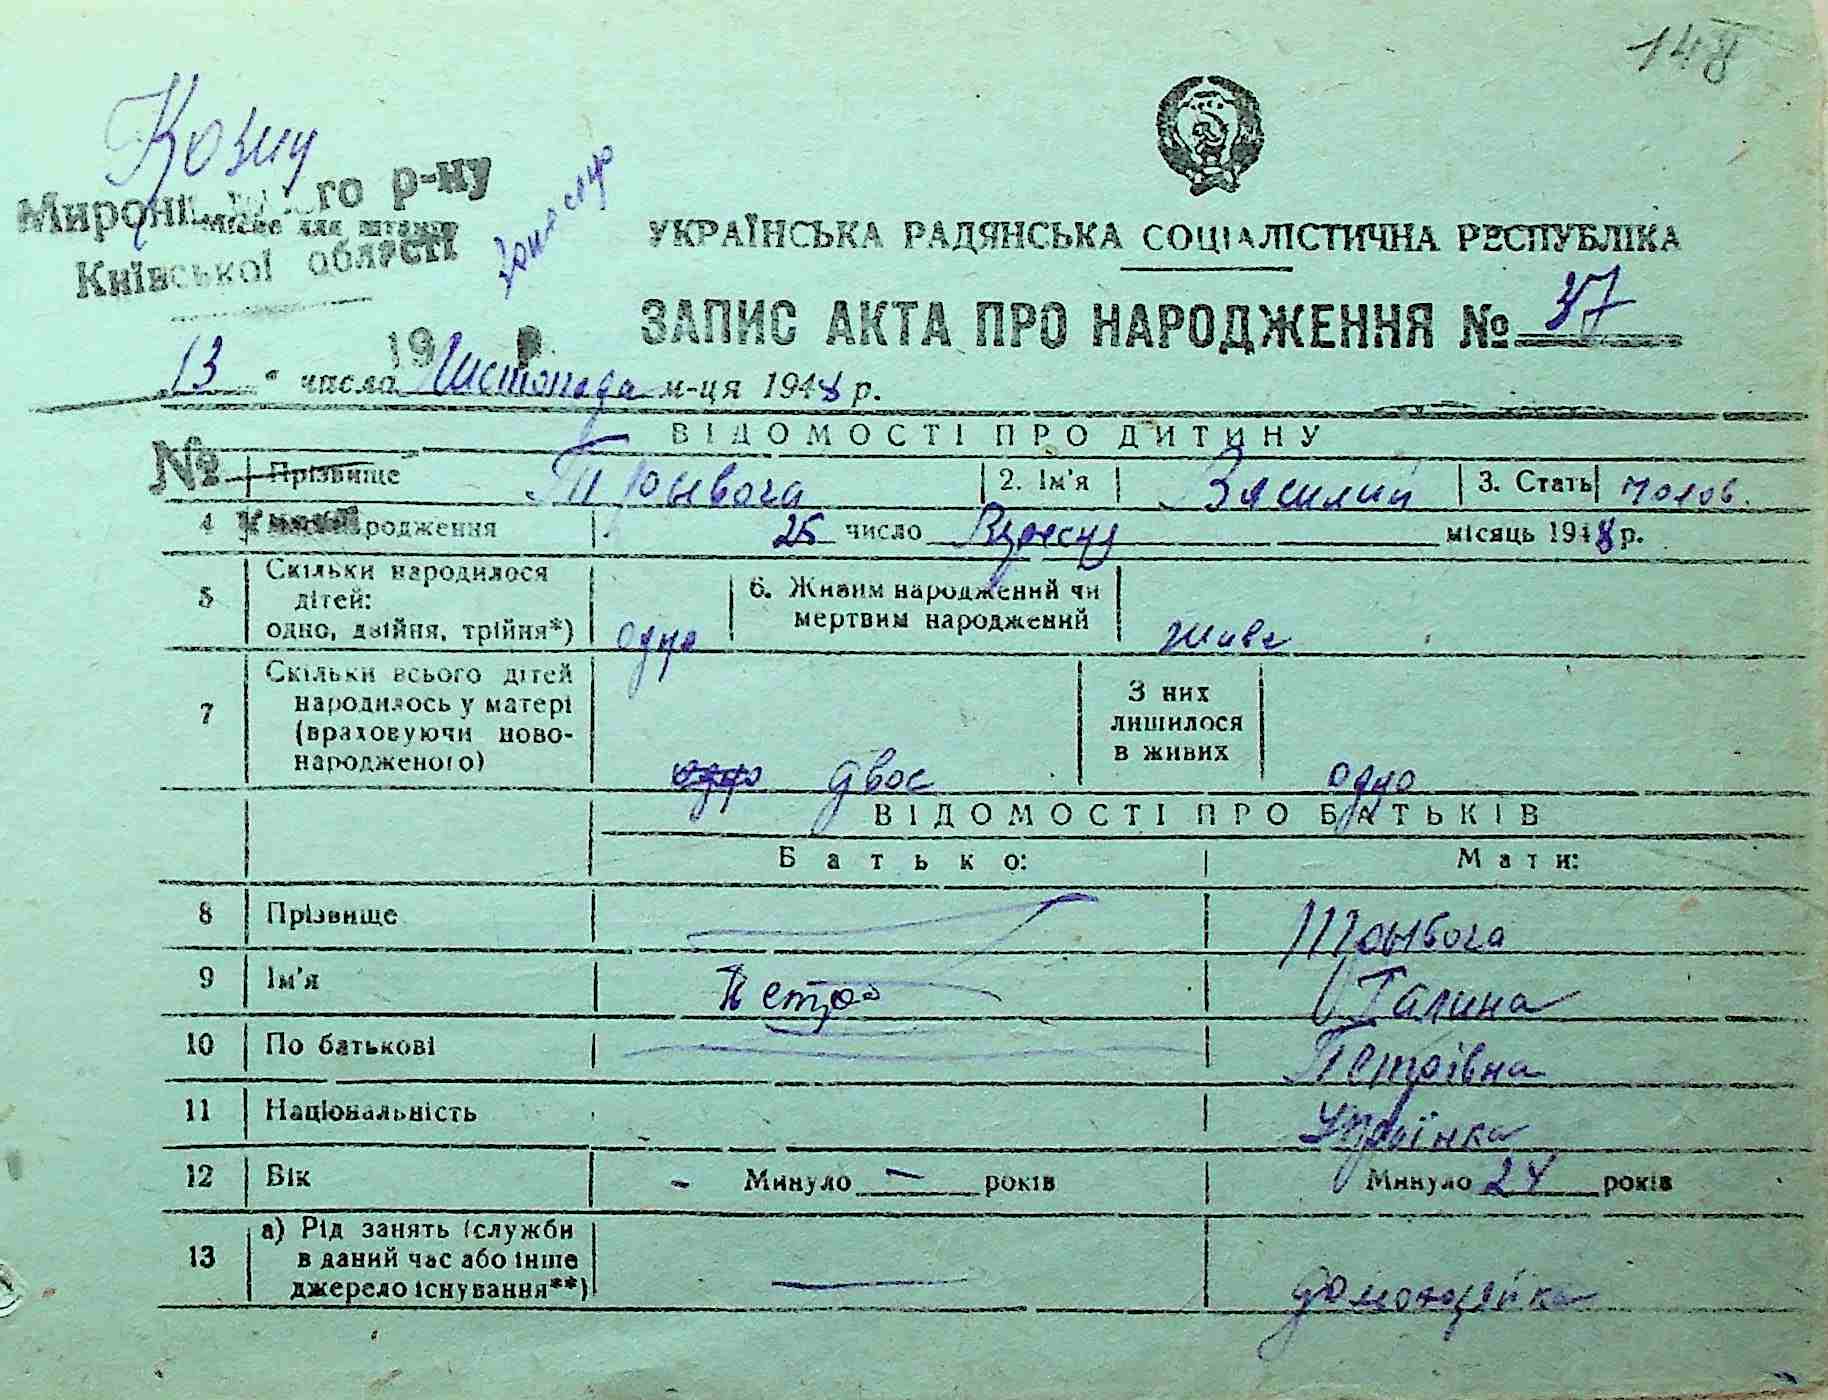 148
Козин
Миронівського р-ну
Місце для штампу
Київської області
УКРАЇНСЬКА РАДЯНСЬКА СОЦІАЛІСТИЧНА РЕСПУБЛІКА
ЗАПИС АКТА ПРО НАРОДЖЕННЯ № 37
19 р.
13 " числа Листопада м-ця 1948 р.
ВІДОМОСТІ ПРО ДИТИНУ
№ Прізвище Тривога 2. Ім'я Василий 3. Стать чолов.
4 родження 25 число Вересня місяць 1948 р.
5 Скільки народилося
дітей:
одно, двійня, трійня*) одно
6. Живим народжений чи
мертвим народжений живе
7 Скільки всього дітей
народилось у матері
(враховуючи ново-
народженого) одно двоє
З них
лишилося
в живих одно
ВІДОМОСТІ ПРО БАТЬКІВ
Батько: Мати:
8 Прізвище Тривога
9 Ім'я Петро Галина
10 По батькові Петрівна
11 Національність Українка
12 Вік - Минуло — років Минуло 24 років
13 а) Рід занять (служби
в даний час або інше
джерело існування**) —